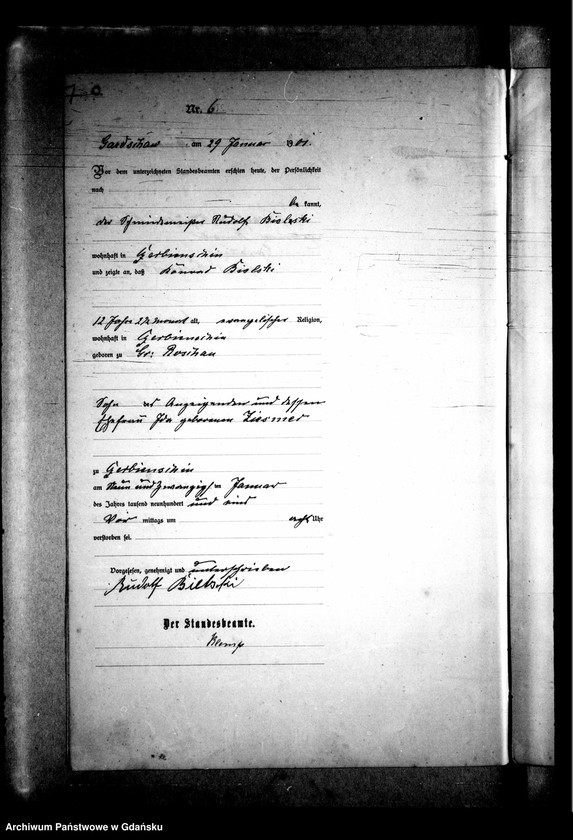 Nr. 6
Gardschau am 29 Januar 1901.
Vor dem unterzeichneten Standesbeamten erschien heute, der Persönlichkeit
nach
be kannt,
der Schmiedemeister Rudolf Bielski
wohnhaft in Gerbienschin
und zeigte an, daß Konrad Bielski
12 Jahre 2½ Monat alt, evangelischer Religion,
wohnhaft in Gerbienschin
geboren zu Gr: Roschau
Sohn des Anzeigenden und dessen
Ehefrau Ida geborenen Ziesmer
zu Gerbienschin
am Neun und zwanzigsten Januar
des Jahres tausend neunhundert und eins
Vor mittags um acht Uhr
verstorben sei.
Vorgelesen, genehmigt und unterschrieben
Rudolf Bielski
Der Standesbeamte.
Archiwum Państwowe w Gdańsku